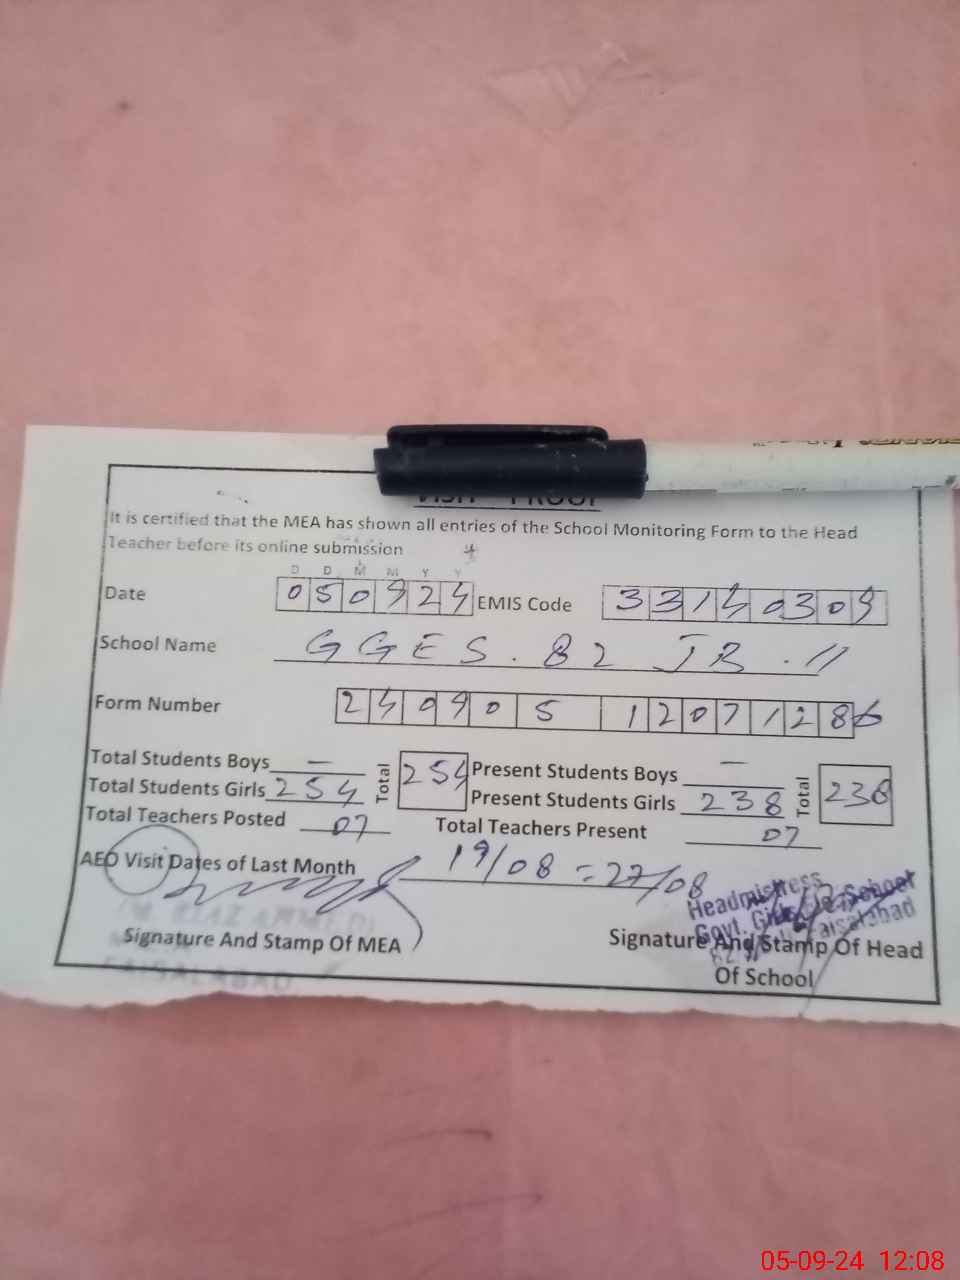 VISIT PROOF
It is certified that the MEA has shown all entries of the School Monitoring Form to the Head
Teacher before its online submission
D D M M Y Y
Date 050924 EMIS Code 33140309
School Name GGES. 82 JB. 11
Form Number 240905 12071286
Total Students Boys — Total 254 Present Students Boys — Total 238
Total Students Girls 254 Present Students Girls 238
Total Teachers Posted 07 Total Teachers Present 07
AEO Visit Dates of Last Month 19/08 = 27/08
Headmistress
Govt. Girls School
Faisalabad
Signature And Stamp Of MEA
FAISALABAD
Signature And Stamp Of Head
Of School
05-09-24 12:08